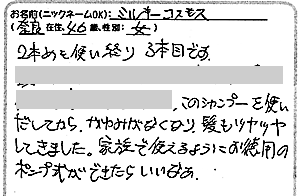 お名前(ニックネームOK): ミルキーコスモス
(奈良 在住, 46 歳、性別: 女)
2本めも使い終り 3本目です。
、このシャンプーを使い
だしてから、かゆみがなくなり、髪もツヤツヤ
してきました。家族で使えるようにお徳用の
ポンプ式ができたらいいなあ。